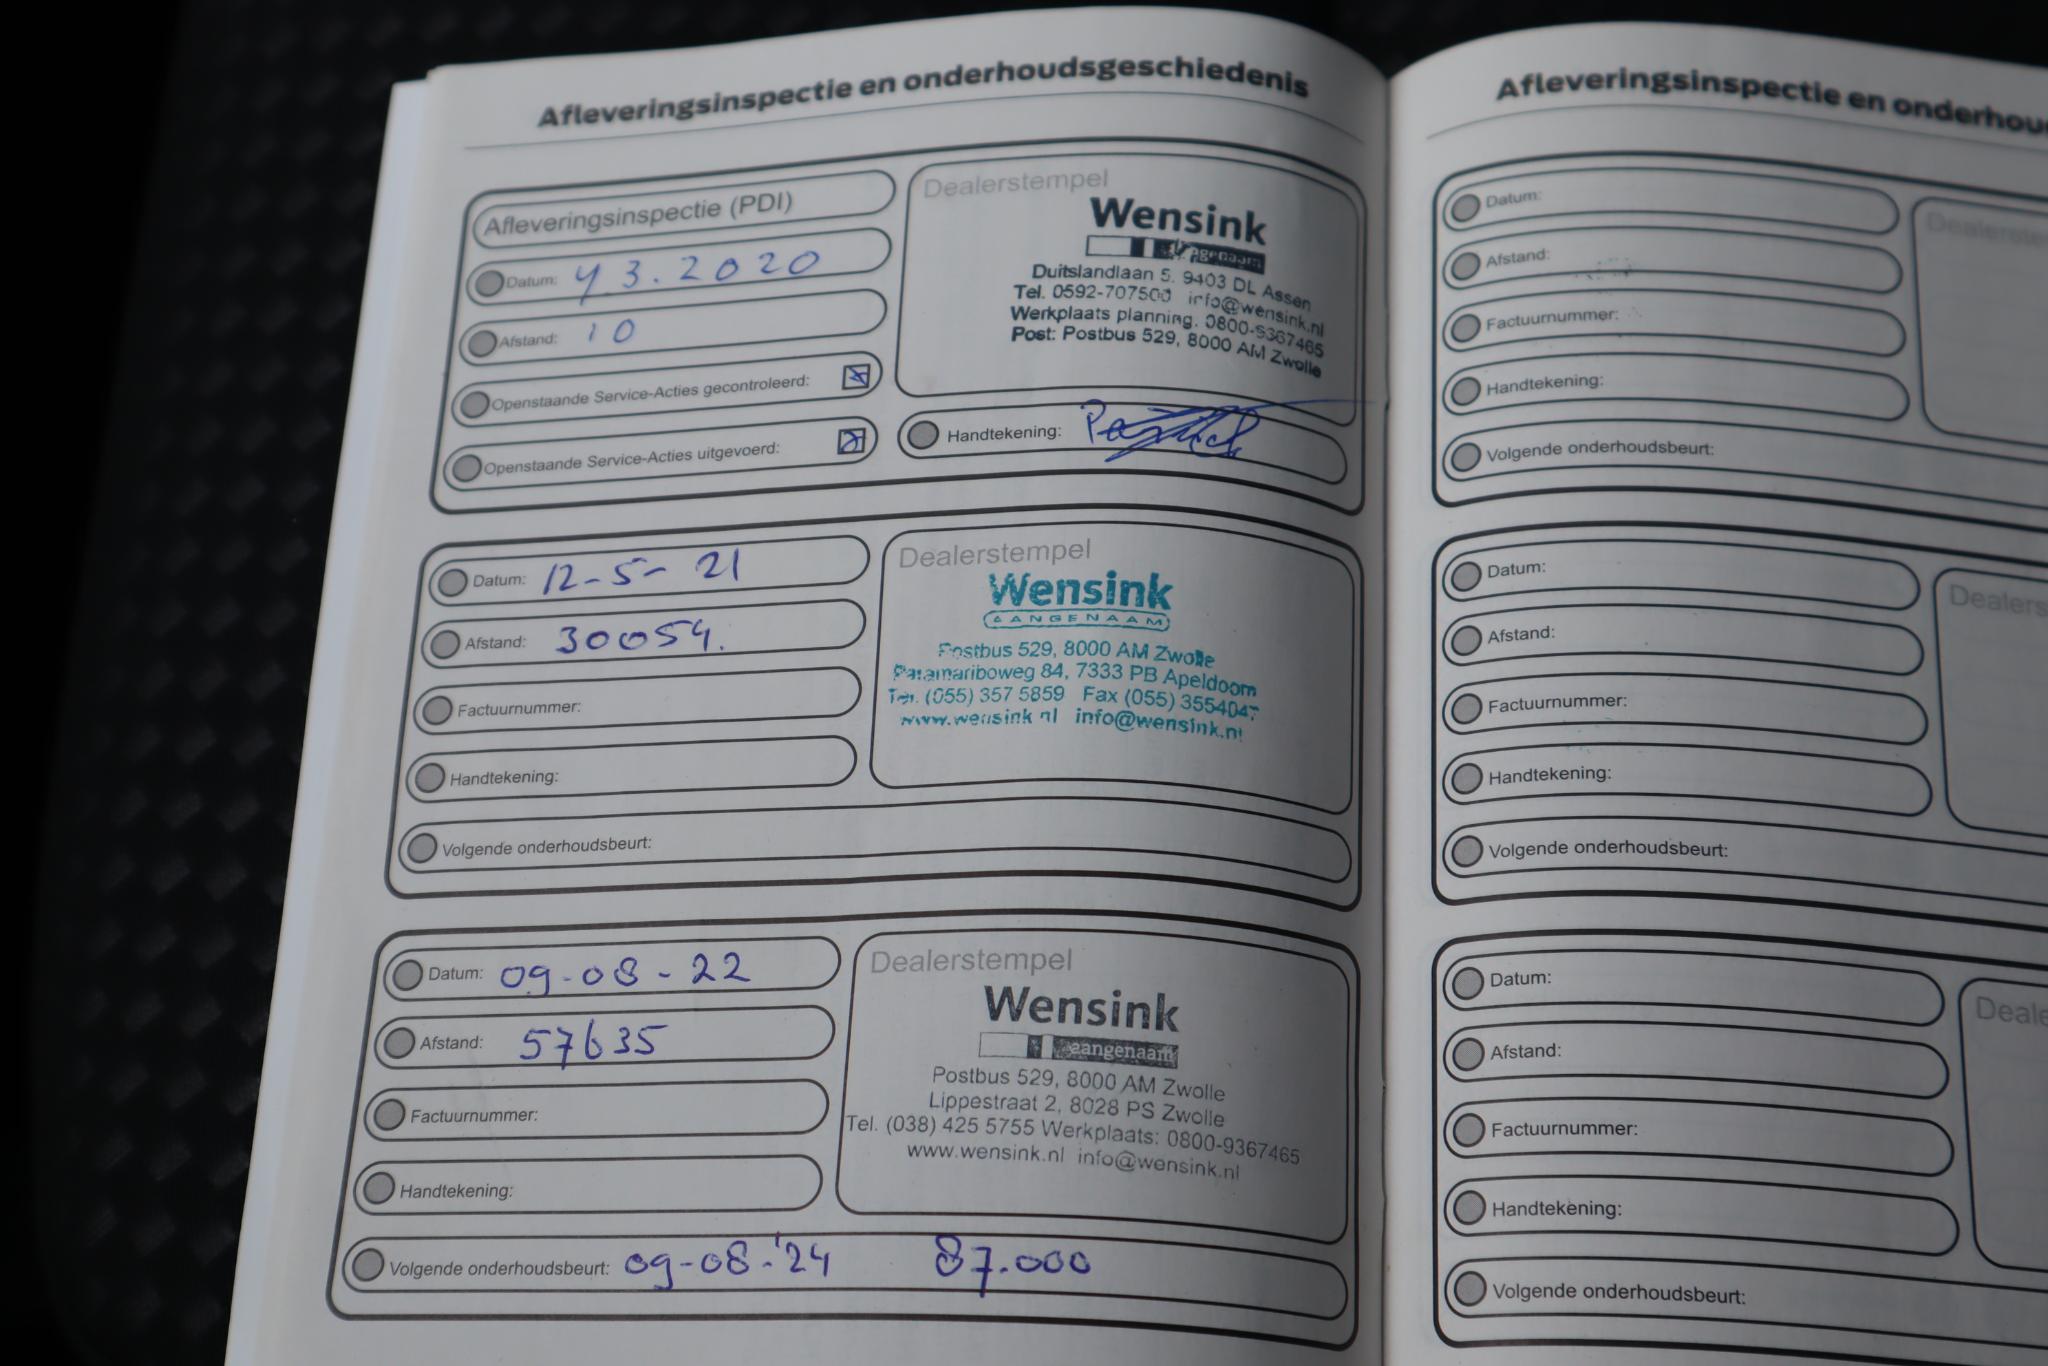 Afleveringsinspectie en onderhoudsgeschiedenis
Afleveringsinspectie (PDI)
Datum: 4 3.2020
Afstand: 10
Openstaande Service-Acties gecontroleerd:
Openstaande Service-Acties uitgevoerd:
Dealerstempel
Wensink
aangenaam
Duitslandlaan 5, 9403 DL Assen
Tel. 0592-707500 info@wensink.nl
Werkplaats planning. 0800-9367465
Post: Postbus 529, 8000 AM Zwolle
Handtekening:
Datum: 12-5-21
Afstand: 30054.
Factuurnummer:
Handtekening:
Volgende onderhoudsbeurt:
Dealerstempel
Wensink
AANGENAAM
Postbus 529, 8000 AM Zwolle
Paramariboweg 84, 7333 PB Apeldoorn
Tel. (055) 357 5859 Fax (055) 3554047
www.wensink.nl info@wensink.nl
Datum: 09-08-22
Afstand: 57635
Factuurnummer:
Handtekening:
Volgende onderhoudsbeurt: 09-08-'24 87.000
Dealerstempel
Wensink
aangenaam
Postbus 529, 8000 AM Zwolle
Lippestraat 2, 8028 PS Zwolle
Tel. (038) 425 5755 Werkplaats: 0800-9367465
www.wensink.nl info@wensink.nl
Afleveringsinspectie en onderhou
Datum:
Afstand:
Factuurnummer:
Handtekening:
Volgende onderhoudsbeurt:
Dealerste
Datum:
Afstand:
Factuurnummer:
Handtekening:
Volgende onderhoudsbeurt:
Dealers
Datum:
Afstand:
Factuurnummer:
Handtekening:
Volgende onderhoudsbeurt:
Deale